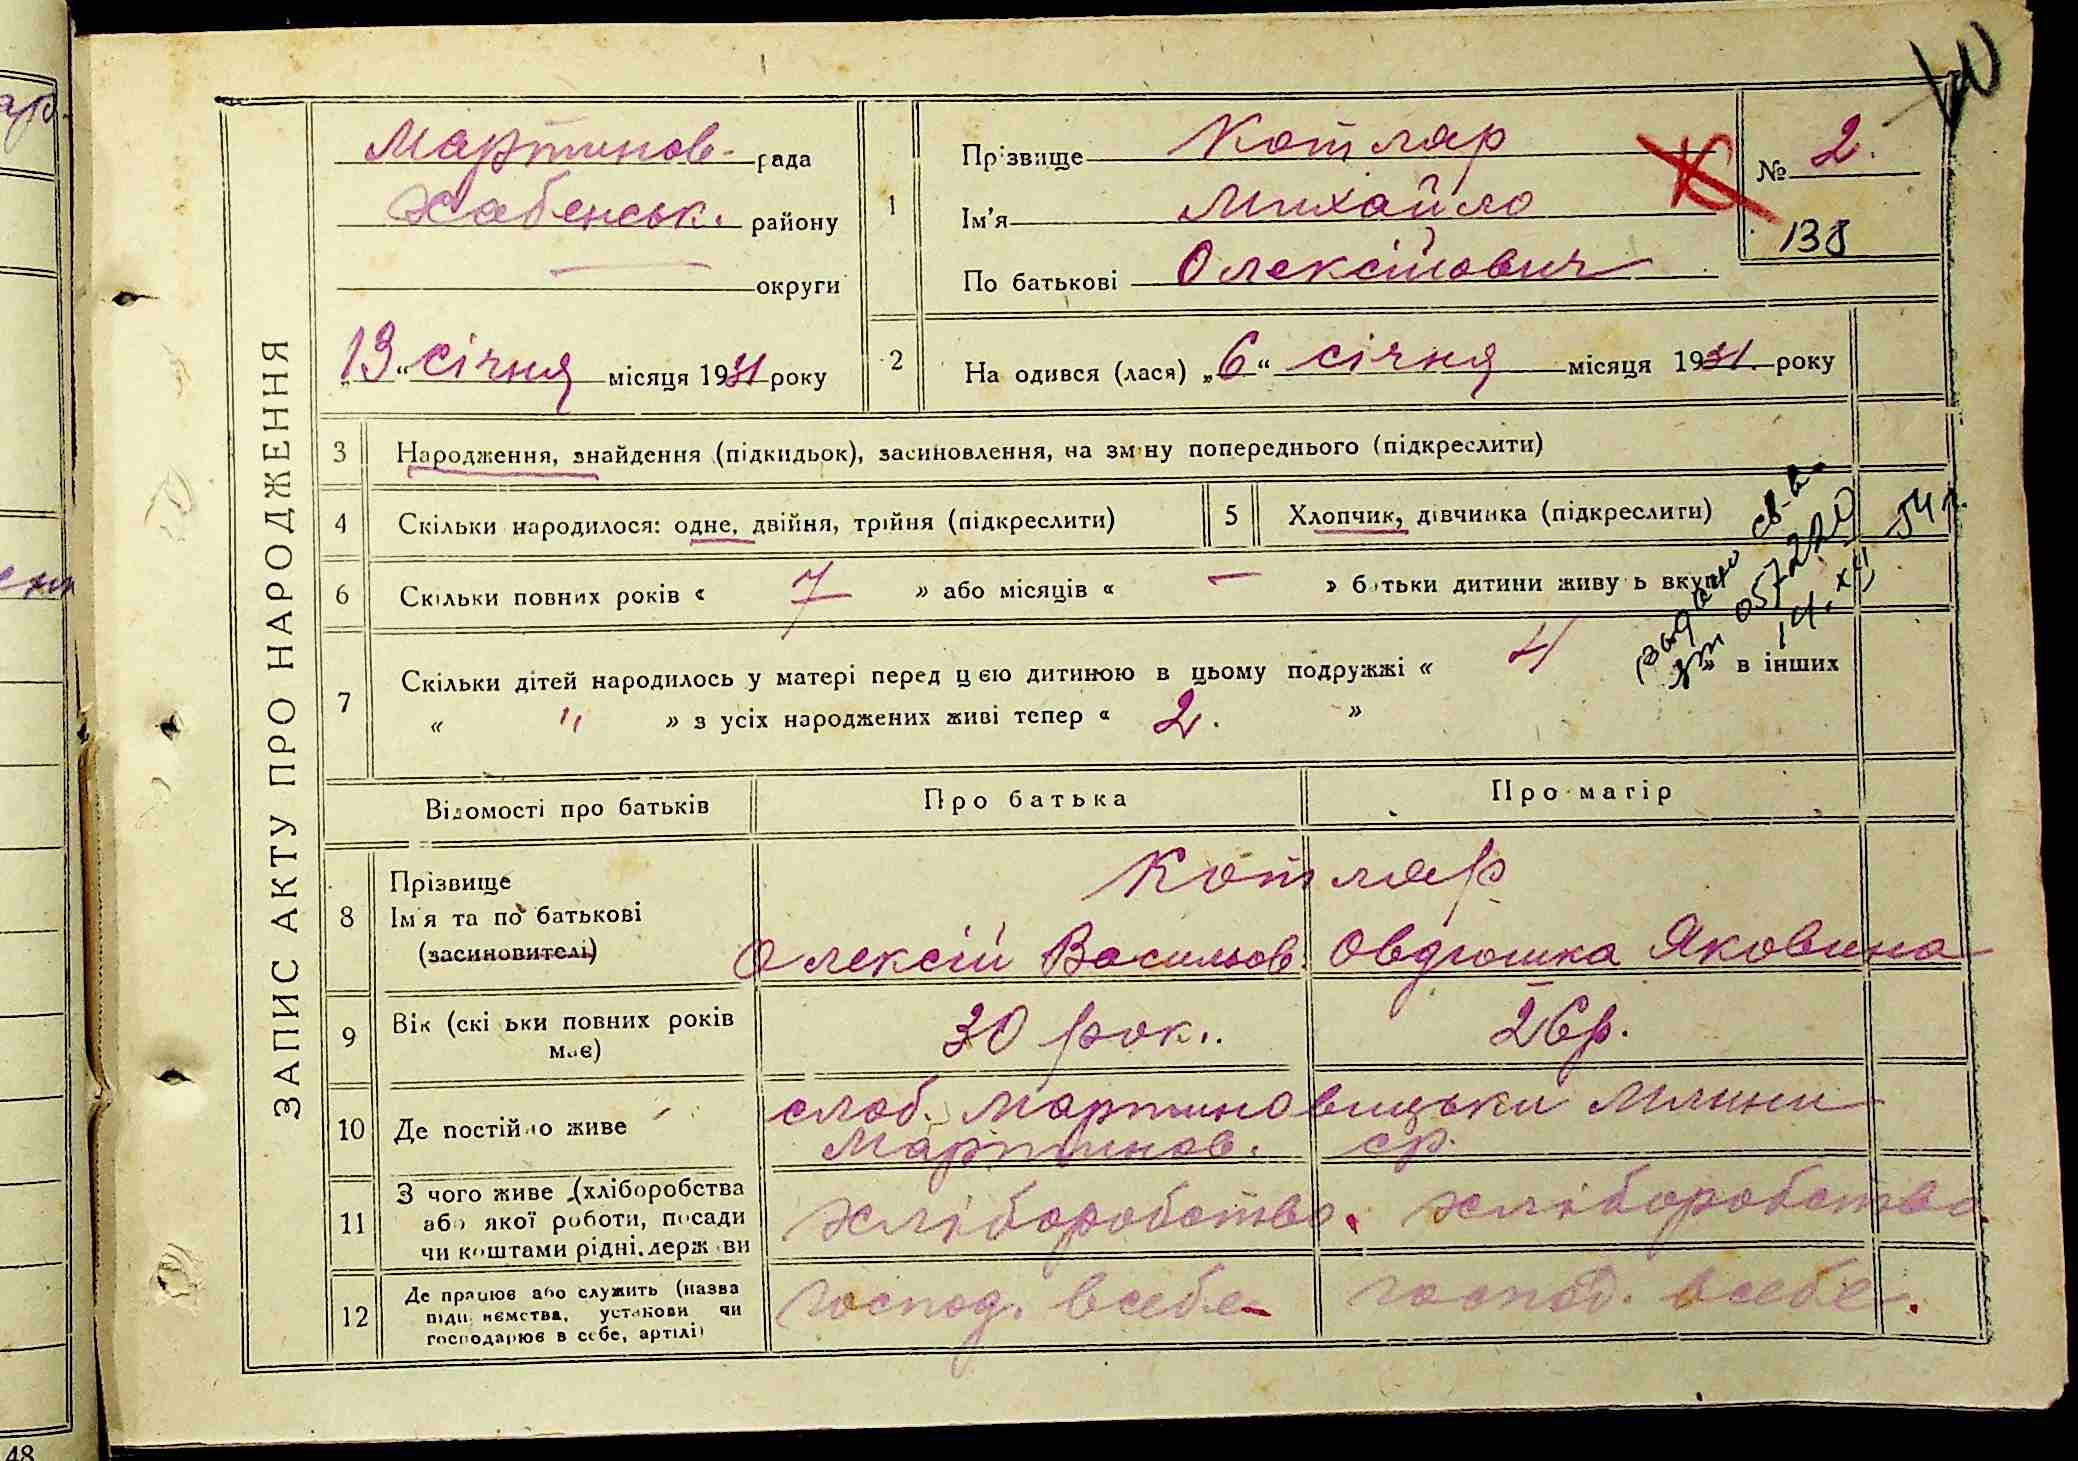 ЗАПИС АКТУ ПРО НАРОДЖЕННЯ
Мартинов- рада
Хабенськ. району
округи
„13“ січня місяця 1931 року
1
Прізвище Котляр
Ім'я Михайло
По батькові Олексійович
№ 2.
138
2
На одився (лася) „6“ січня місяця 1931. року
3 Народження, знайдення (підкидьок), засиновлення, на зміну попереднього (підкреслити)
4 Скільки народилося: одне, двійня, трійня (підкреслити)
5 Хлопчик, дівчинка (підкреслити)
6 Скільки повних років « 7 » або місяців « — » батьки дитини живуть вкупі
7 Скільки дітей народилось у матері перед цією дитиною в цьому подружжі « 4 » в інших
« " » з усіх народжених живі тепер « 2. »
видано св-во
057220
14. XII 54 р.
Відомості про батьків
Про батька
Про матір
8 Прізвище
Ім'я та по батькові
(засиновителі)
Котляр
Олексій Васильов. Овдюшка Яковина
9 Вік (скільки повних років
має)
30 рок..
26р.
10 Де постійно живе
слоб. Мартиновицьки Млини
Мартинов. ср.
11 З чого живе (хліборобства
або якої роботи, посади
чи коштами рідні, держави
хліборобство. хліборобство.
12 Де працює або служить (назва
підприємства, установи чи
господарює в себе, артілі)
господ. в себе господ. в себе.
48